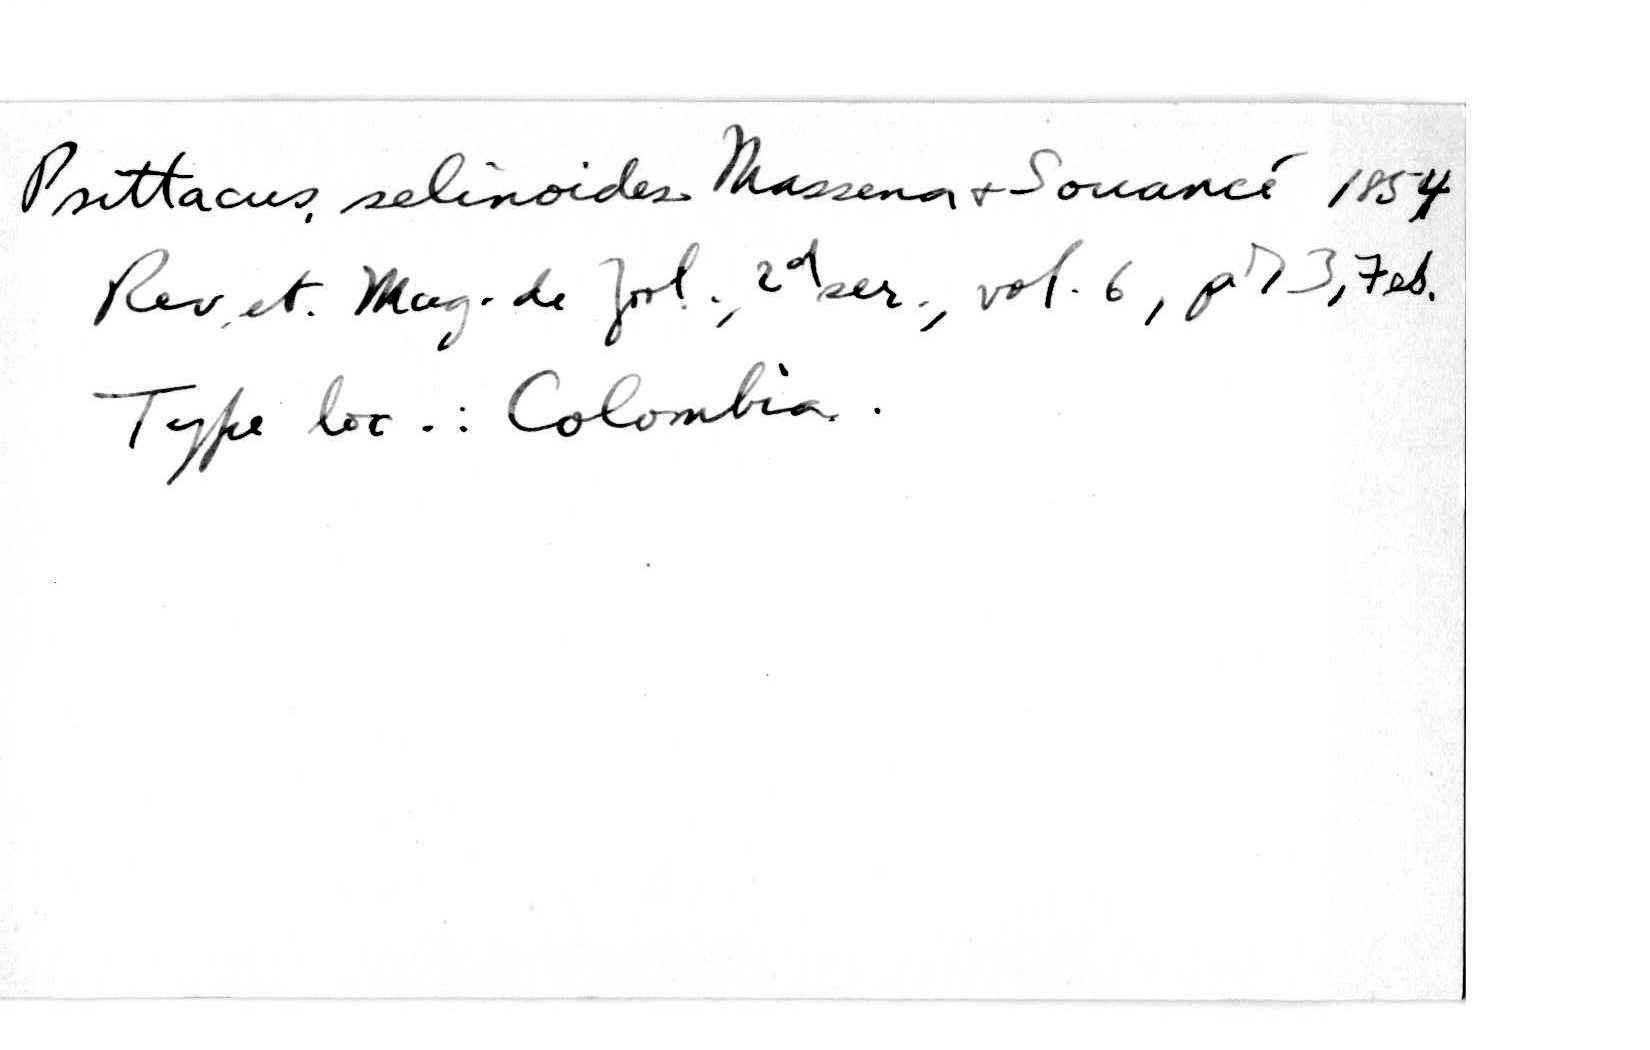 Psittacus selinoides Massena & Souancé 1854
Rev. et. Mag. de Zool., 2d ser., vol. 6, p. 73, Feb.
Type loc.: Colombia.